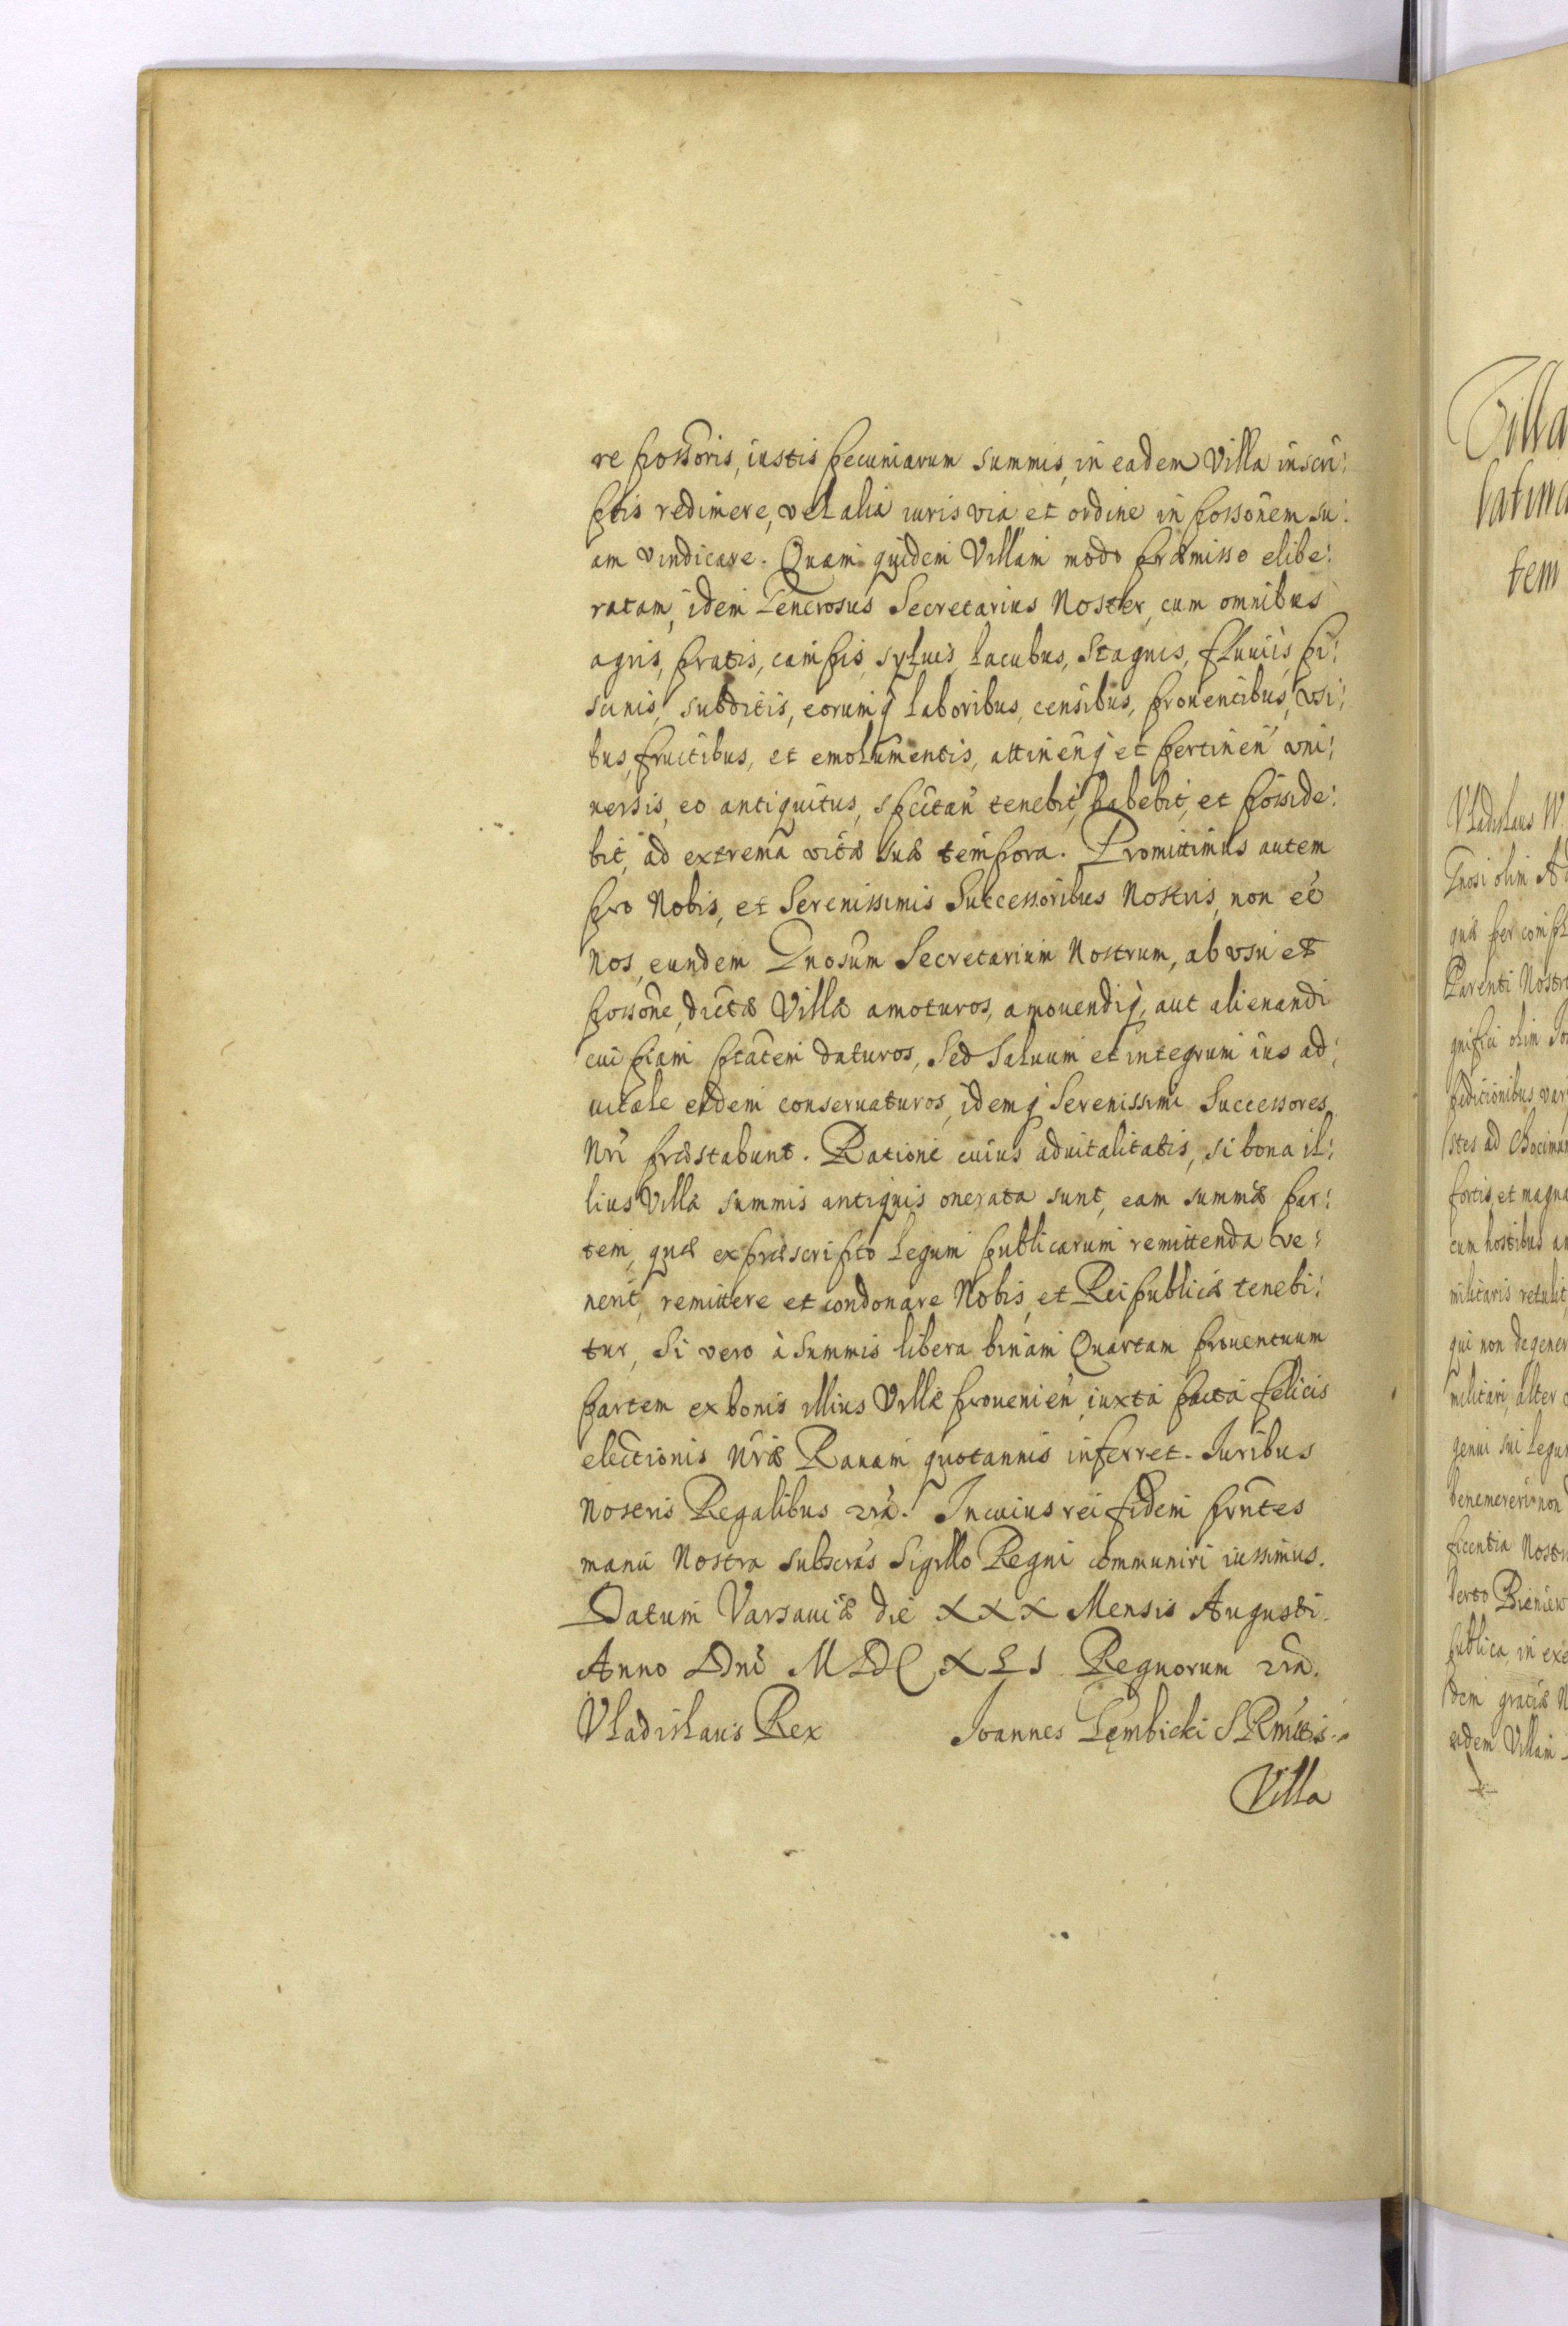 re possoris, iustis pecuniarum summis, in eadem Villa inscri:
ptis redimere, vel alia iuris via et ordine in possonem su:
am vindicare. Quam quidem Villam modo præmisso elibe:
ratam, idem Generosus Secretarius Noster, cum omnibus
agris, pratis, campis, syluis, lacubus, stagnis, fluuiis, pi:
scinis, subditis, eorumq laboribus, censibus, prouentibus, vsi:
bus, fructibus, et emolumentis, attinenq et pertinen vni:
uersis, eo antiquitus, spectan tenebit, habebit, et posside:
bit, ad extrema vitæ suæ tempora. Promittimus autem
pro Nobis, et Serenissimis Successoribus Nostris, non eē
Nos, eundem Gnosum Secretarium Nostrum, ab vsu et
possone, dictæ Villæ amoturos, amouendiq, aut alienandi
cuipiam ptatem daturos, Sed Saluum et integrum ius ad:
uitale eidem conseruaturos, idemq Serenissimi Successores
Nri præstabunt. Ratione cuius aduitalitatis, si bona il:
lius Villæ summis antiquis onerata sunt, eam summæ par:
tem, quæ ex præscripto Legum publicarum remittenda ve:
nerit, remittere et condonare Nobis, et Reipublicæ tenebi:
tur, Si vero à summis libera binam Quartam prouentuum
partem ex bonis illius Villæ prouenien, iuxta pacta felicis
electionis Nræ Rauam quotannis inferret. Iuribus
Nostris Regalibus In cuius rei fidem prntes
manu Nostra subscras Sigillo Regni communiri iussimus.
Datum Varsauiæ die XXX Mensis Augusti
Anno Dni MDCXLI Regnorum
Vladislaus Rex Joannes Gembicki S Rmttis
Villa
Villa
tem
Vladislaus
Gnosi olim
quæ per
Parenti Nostri
olim
stes ad
fortis, et magna
cum hostibus
militaris retulit
qui non degener
militari, alter
genui sui
benemereri non
ficentia Nostr
publica, in
dem gratiæ
eidem Villam